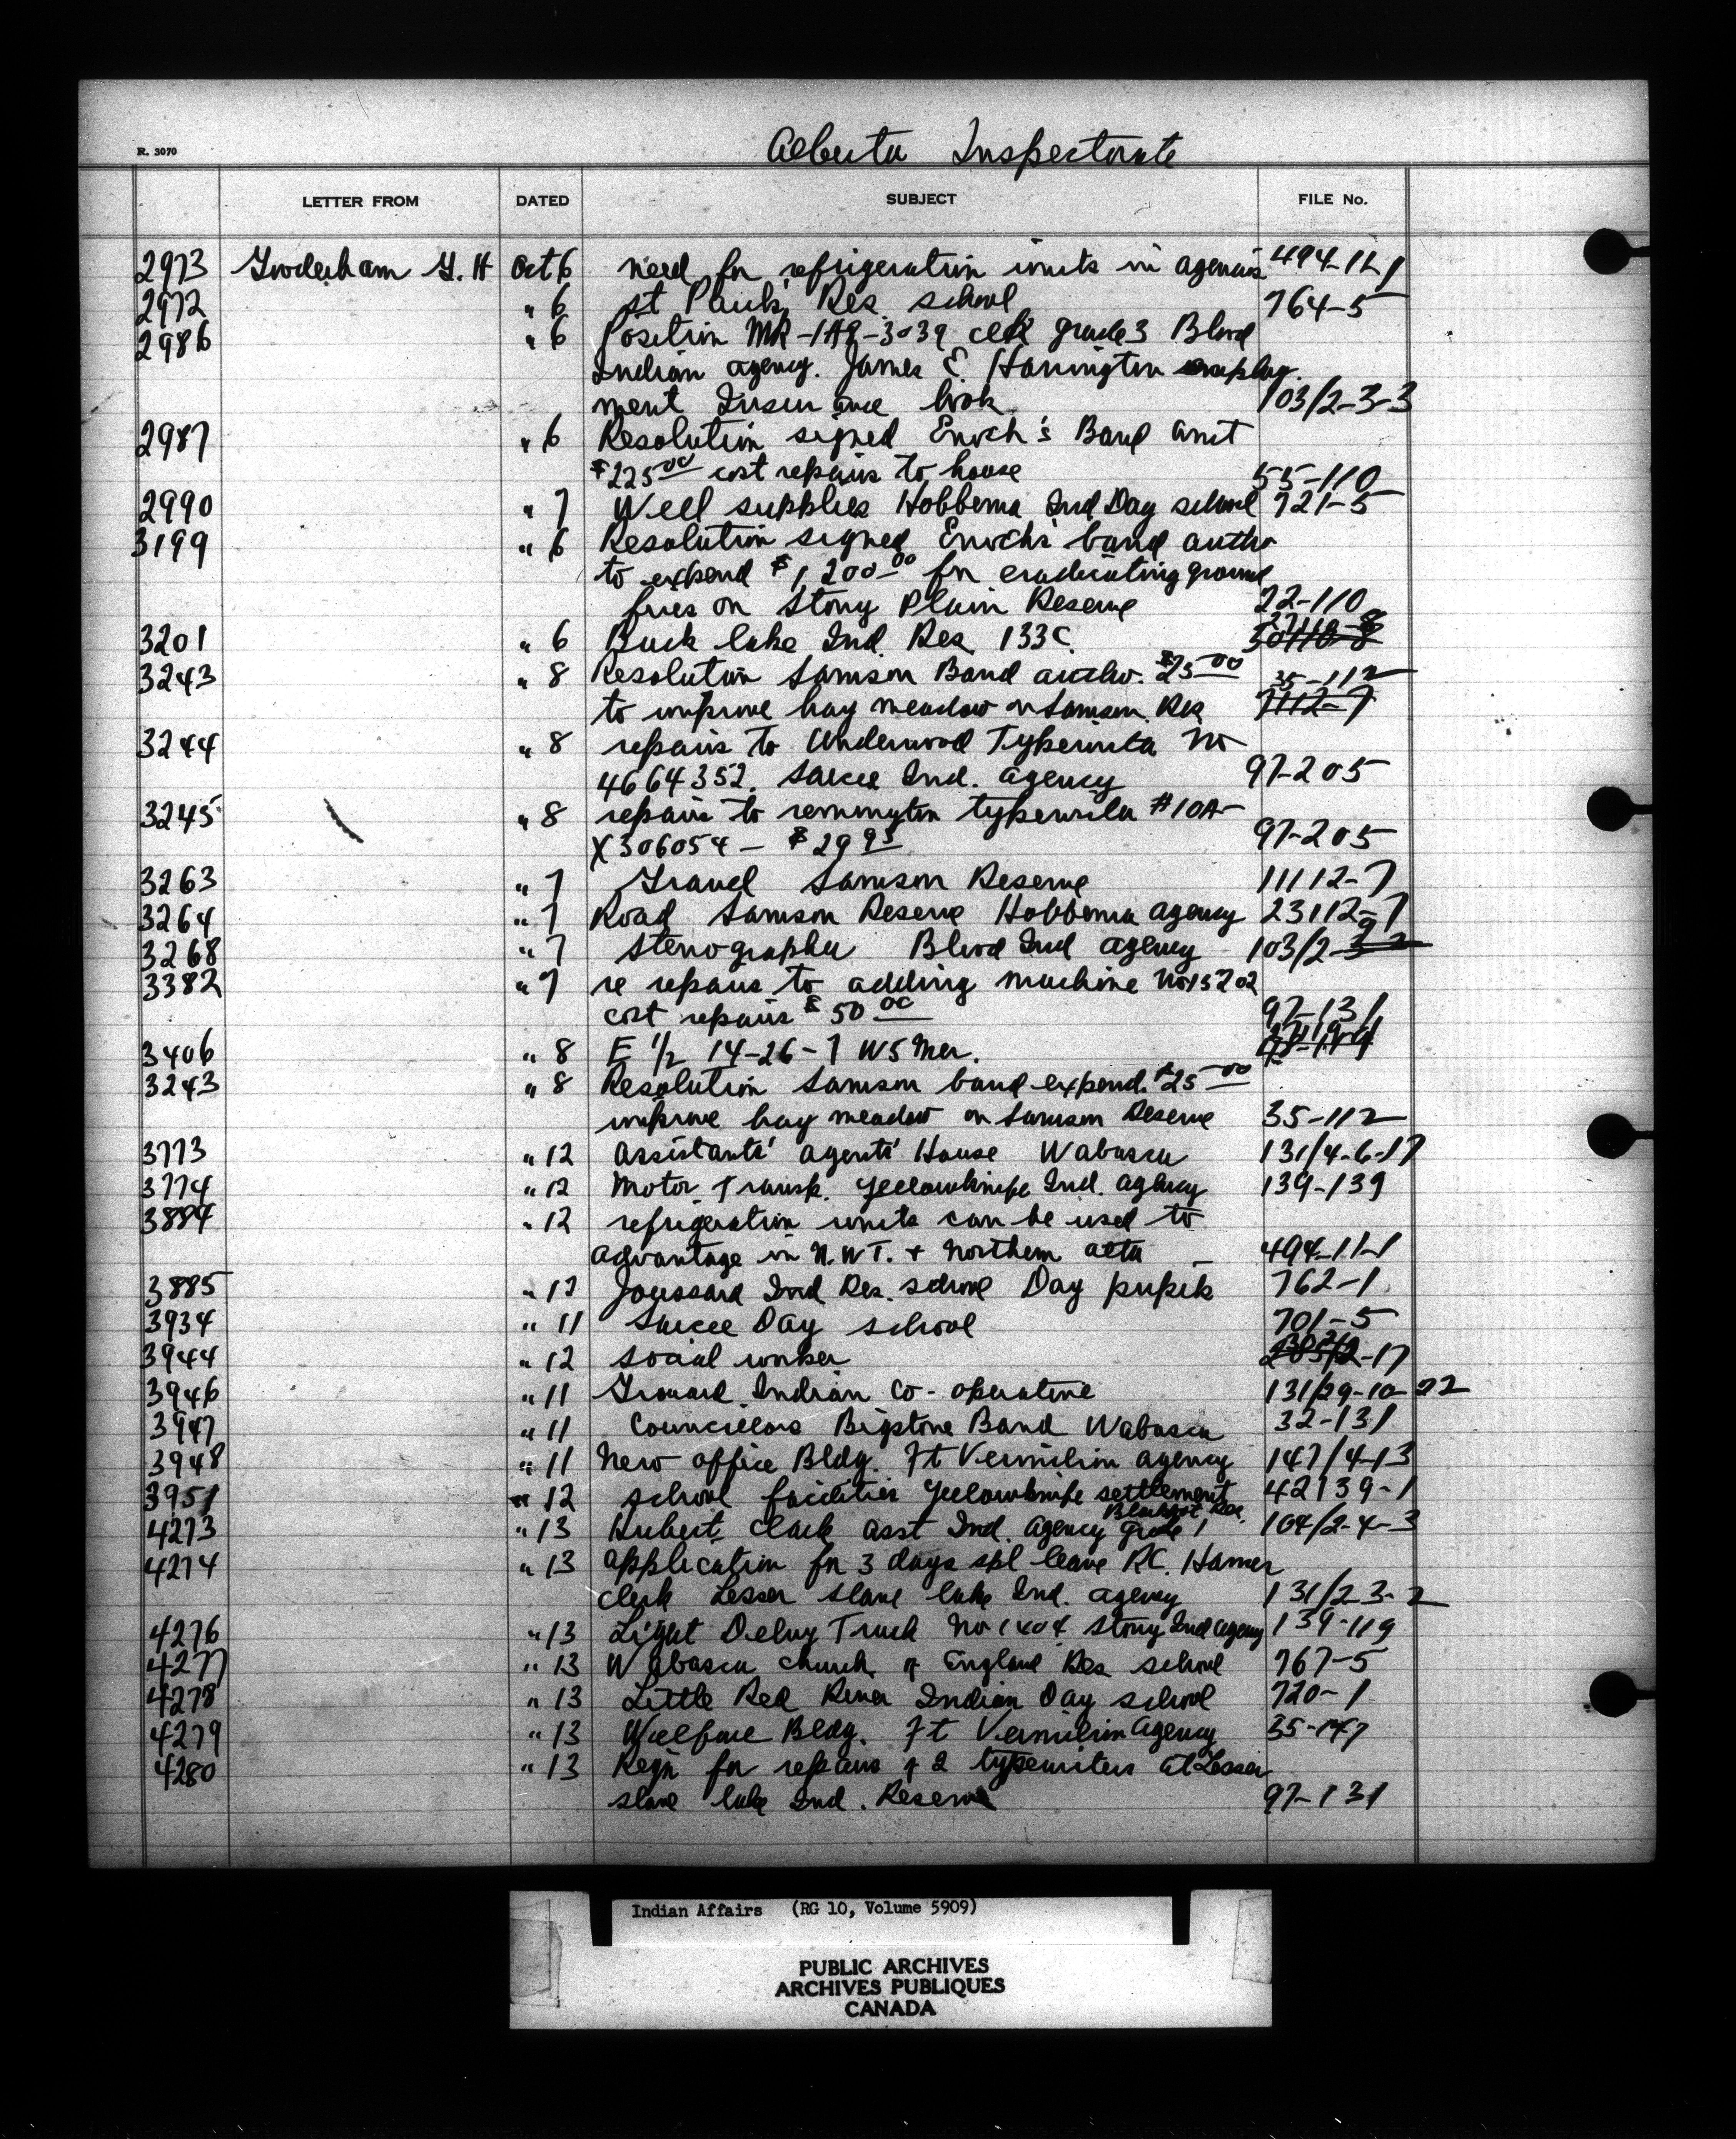 Alberta Inspectorate
R. 3070
LETTER FROM DATED SUBJECT FILE No.
2973 Gooderham G. H Oct 6 need for refrigeration units in agencies 494-11-1
2972 " 6 St Paul's Res. school 764-5
2986 " 6 Position MR-1AR-3039 clk grade 3 Blood
Indian agency. James E. Harrington employ-
ment Insurance book 103/2-3-3
2987 " 6 Resolution signed Enoch's Band amt
$225 00 cost repairs to house 55-110
2990 " 7 Well supplies Hobbema Ind Day school 721-5
3199 " 6 Resolution signed Enoch's band autho
to expend $1,200 00 for eradicating ground
fires on Stony Plain Reserve 22-110
3201 " 6 Buck lake Ind. Res. 133C.
3243 " 8 Resolution Samson Band autho. $25 00 35-112
to improve hay meadow on Samson. Res 7112-7
3244 " 8 repairs to Underwood Typewriter No
4664352. Sarcee Ind. agency 97-205
3245 " 8 repairs to remmington typewriter #10A-
X306054 - $29 95 97-205
3263 " 7 Gravel Samson Reserve 11112-7
3264 " 7 Road Samson Reserve Hobbema agency 23112-7
3268 " 7 Stenographer Blood Ind agency 103/2-
3382 " 7 re repairs to adding machine
cost repairs $50 00 97-131
3406 " 8 E 1/2 14-26-7 W5 Mer.
3243 " 8 Resolution Samson band expend. $25 00
improve hay meadow on Samson Reserve 35-112
3773 " 12 Assistants' agents' House Wabasca 131/4-6-17
3774 " 12 Motor Transp. Yellowknife Ind. agency 139-139
3884 " 12 refrigeration units can be used to
advantage in N.W.T. + Northern alta 494-11-1
3885 " 12 Joussard Ind Res. school Day pupils 762-1
3934 " 11 Sarcee Day school 701-5
3944 " 12 social worker -17
3946 " 11 Grouard Indian Co-operative 131/29-10-22
3947 " 11 Councillors Bigstone Band Wabasca 32-131
3948 " 11 New office Bldg. Ft Vermilion agency 147/4-13
3951 " 12 school facilities Yellowknife settlement 42139-1
Blackfoot Res.
4273 " 13 Hubert Clark asst Ind. agency grade 1 104/2-4-3
4274 " 13 application for 3 days spl leave R.C. Hamer
clerk Lesser Slave lake Ind. agency 131/2 3-2
4276 " 13 Light Delvy Truck No 1404 Stony Ind agency 139-119
4277 " 13 Wabasca church of England Res school 767-5
4278 " 13 Little Red River Indian Day school 720-1
4279 " 13 Welfare Bldg. Ft Vermilion Agency 35-147
4280 " 13 Reqn for repairs of 2 typewriters at Lesser
slave lake Ind. Reserve 97-131
Indian Affairs (RG 10, Volume 5909)
PUBLIC ARCHIVES
ARCHIVES PUBLIQUES
CANADA